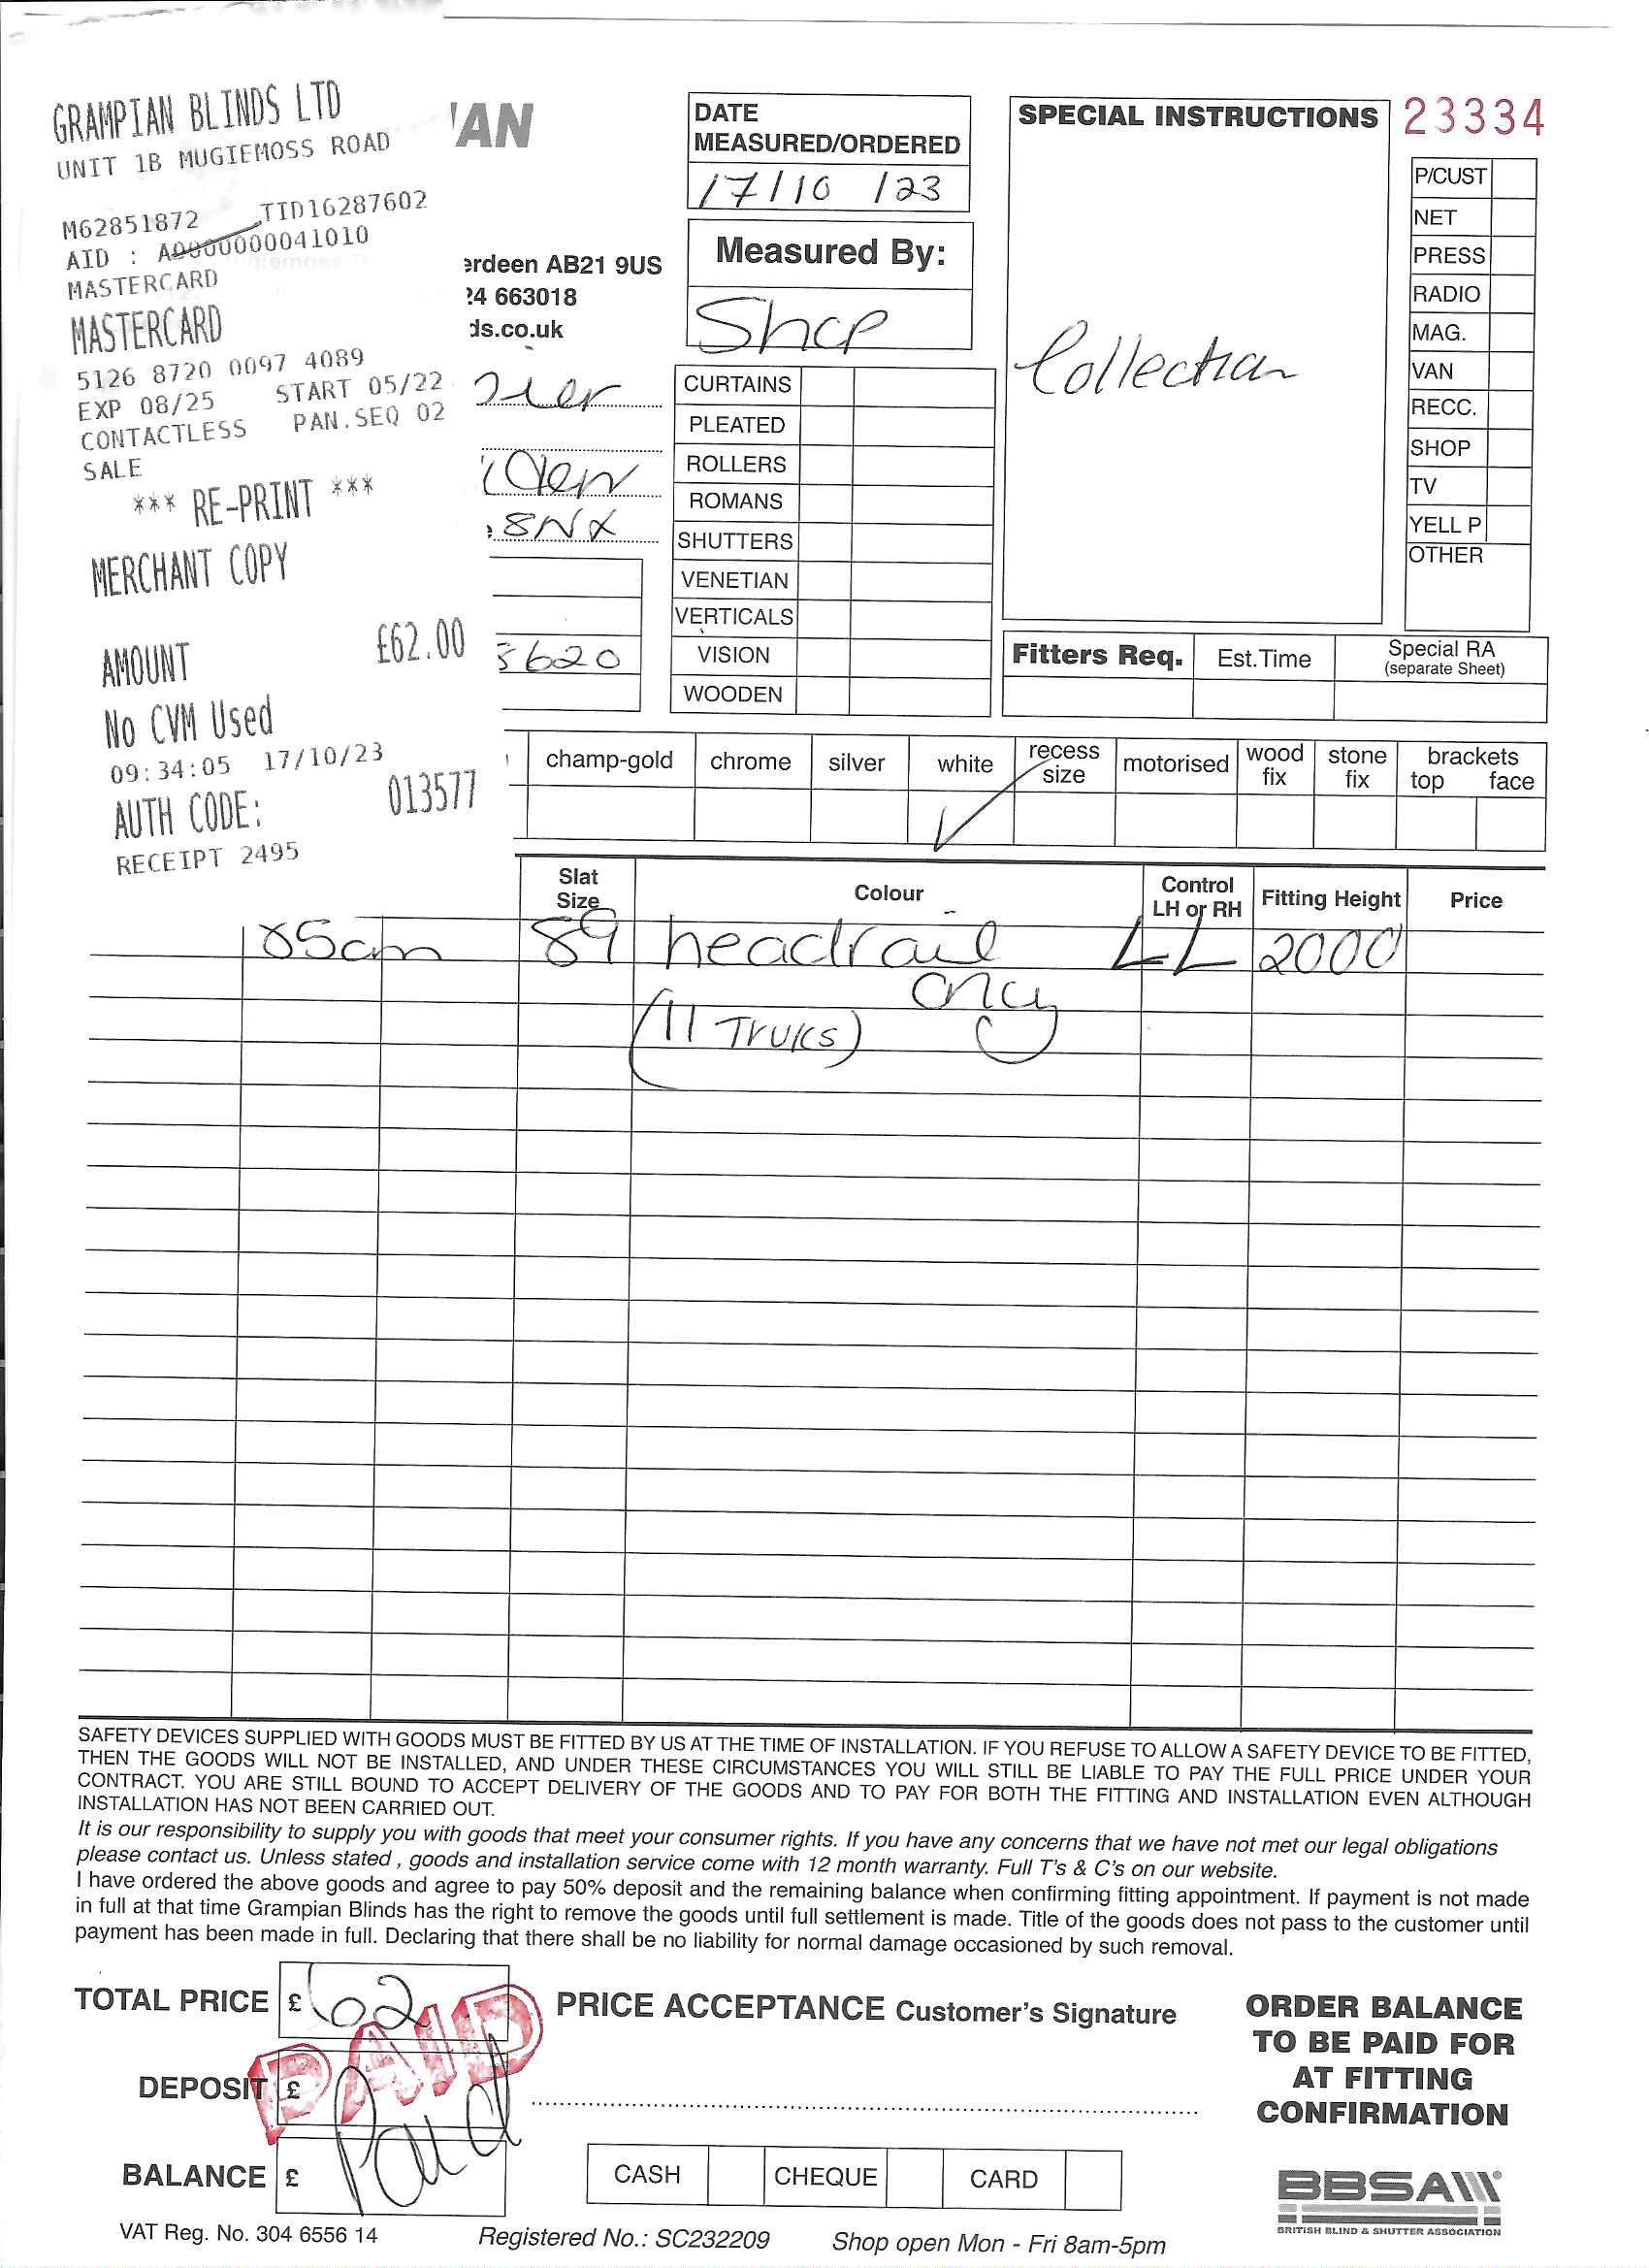 GRAMPIAN BLINDS LTD
UNIT 1B MUGIEMOSS ROAD
M62851872 TID16287602
AID : A0000000041010
MASTERCARD
MASTERCARD
5126 8720 0097 4089
EXP 08/25 START 05/22
CONTACTLESS PAN.SEQ 02
SALE
*** RE-PRINT ***
MERCHANT COPY
AMOUNT £62.00
No CVM Used
09:34:05 17/10/23
AUTH CODE: 013577
RECEIPT 2495
AN
erdeen AB21 9US
24 663018
ds.co.uk
8NX
3620
DATE
MEASURED/ORDERED
17/10/23
Measured By:
Shop
CURTAINS
PLEATED
ROLLERS
ROMANS
SHUTTERS
VENETIAN
VERTICALS
VISION
WOODEN
SPECIAL INSTRUCTIONS
Collection
23334
P/CUST
NET
PRESS
RADIO
MAG.
VAN
RECC.
SHOP
TV
YELL P
OTHER
Fitters Req. Est.Time Special RA
(separate Sheet)
champ-gold chrome silver white recess size motorised wood fix stone fix brackets
top face
Slat Size Colour Control LH or RH Fitting Height Price
185cm 89 headrail LL 2000
only
(11 Truks)
SAFETY DEVICES SUPPLIED WITH GOODS MUST BE FITTED BY US AT THE TIME OF INSTALLATION. IF YOU REFUSE TO ALLOW A SAFETY DEVICE TO BE FITTED,
THEN THE GOODS WILL NOT BE INSTALLED, AND UNDER THESE CIRCUMSTANCES YOU WILL STILL BE LIABLE TO PAY THE FULL PRICE UNDER YOUR
CONTRACT. YOU ARE STILL BOUND TO ACCEPT DELIVERY OF THE GOODS AND TO PAY FOR BOTH THE FITTING AND INSTALLATION EVEN ALTHOUGH
INSTALLATION HAS NOT BEEN CARRIED OUT.
It is our responsibility to supply you with goods that meet your consumer rights. If you have any concerns that we have not met our legal obligations
please contact us. Unless stated , goods and installation service come with 12 month warranty. Full T's & C's on our website.
I have ordered the above goods and agree to pay 50% deposit and the remaining balance when confirming fitting appointment. If payment is not made
in full at that time Grampian Blinds has the right to remove the goods until full settlement is made. Title of the goods does not pass to the customer until
payment has been made in full. Declaring that there shall be no liability for normal damage occasioned by such removal.
TOTAL PRICE £ 62
PAID
DEPOSIT £
Paid
BALANCE £
PRICE ACCEPTANCE Customer's Signature
CASH CHEQUE CARD
ORDER BALANCE
TO BE PAID FOR
AT FITTING
CONFIRMATION
BBSA
BRITISH BLIND & SHUTTER ASSOCIATION
VAT Reg. No. 304 6556 14 Registered No.: SC232209 Shop open Mon - Fri 8am-5pm